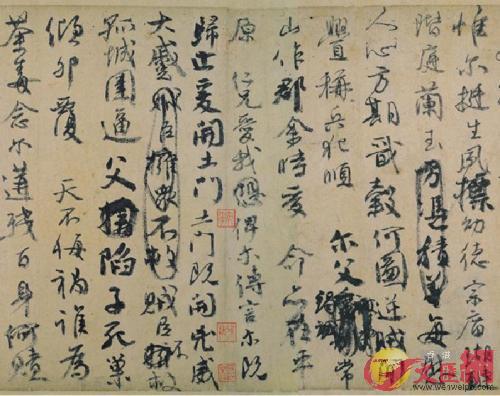 惟尔挺生夙標幼德宗廟瑚
階庭蘭玉方憑積善每慰
人心方期戩穀何圖逆賊
釁稱兵犯順尔父竭誠常
山作郡余時受命亦在平
原仁兄愛我恐俾尔傳言尔既
歸止爰開土門土門既開凶威
大蹙賊臣擁衆不救賊臣不救
孤城圍逼父陷子死巢
傾卵覆天不悔禍誰為
荼毒念尔遘殘百身何贖
香港
文匯網
www.wenweipo.com